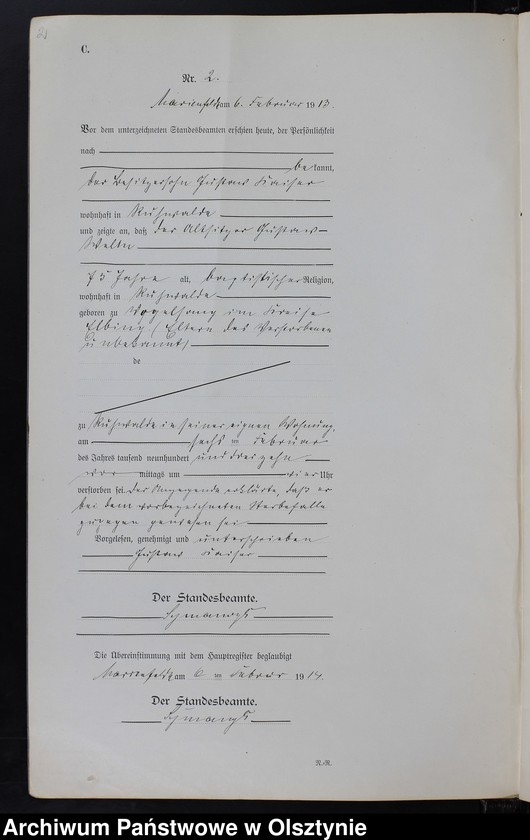 C.
Nr. 2.
Marienfelde am 6. Februar 1913.
Vor dem unterzeichneten Standesbeamten erschien heute, der Persönlichkeit
nach
be kannt,
der Besitzersohn Gustav Kaiser
wohnhaft in Ruhwalde
und zeigte an, daß der Altsitzer Gustav
75 Jahre alt, baptistischer Religion,
wohnhaft in Ruhwalde
geboren zu Vogelsang im Kreise
Elbing (Eltern des Verstorbenen
unbekannt)
de
zu Ruhwalde in seiner eignen Wohnung,
am sechsten Februar
des Jahres tausend neunhundert und dreizehn
vor mittags um vier Uhr
verstorben sei. Der Anzeigende erklärte, daß er
bei dem vorbezeichneten Sterbefalle
zugegen gewesen sei
Vorgelesen, genehmigt und unterschrieben
Gustav Kaiser
Der Standesbeamte.
Die Übereinstimmung mit dem Hauptregister beglaubigt
Marienfelde am 6 ten Februar 1914.
Der Standesbeamte.
N.-R.
Archiwum Państwowe w Olsztynie